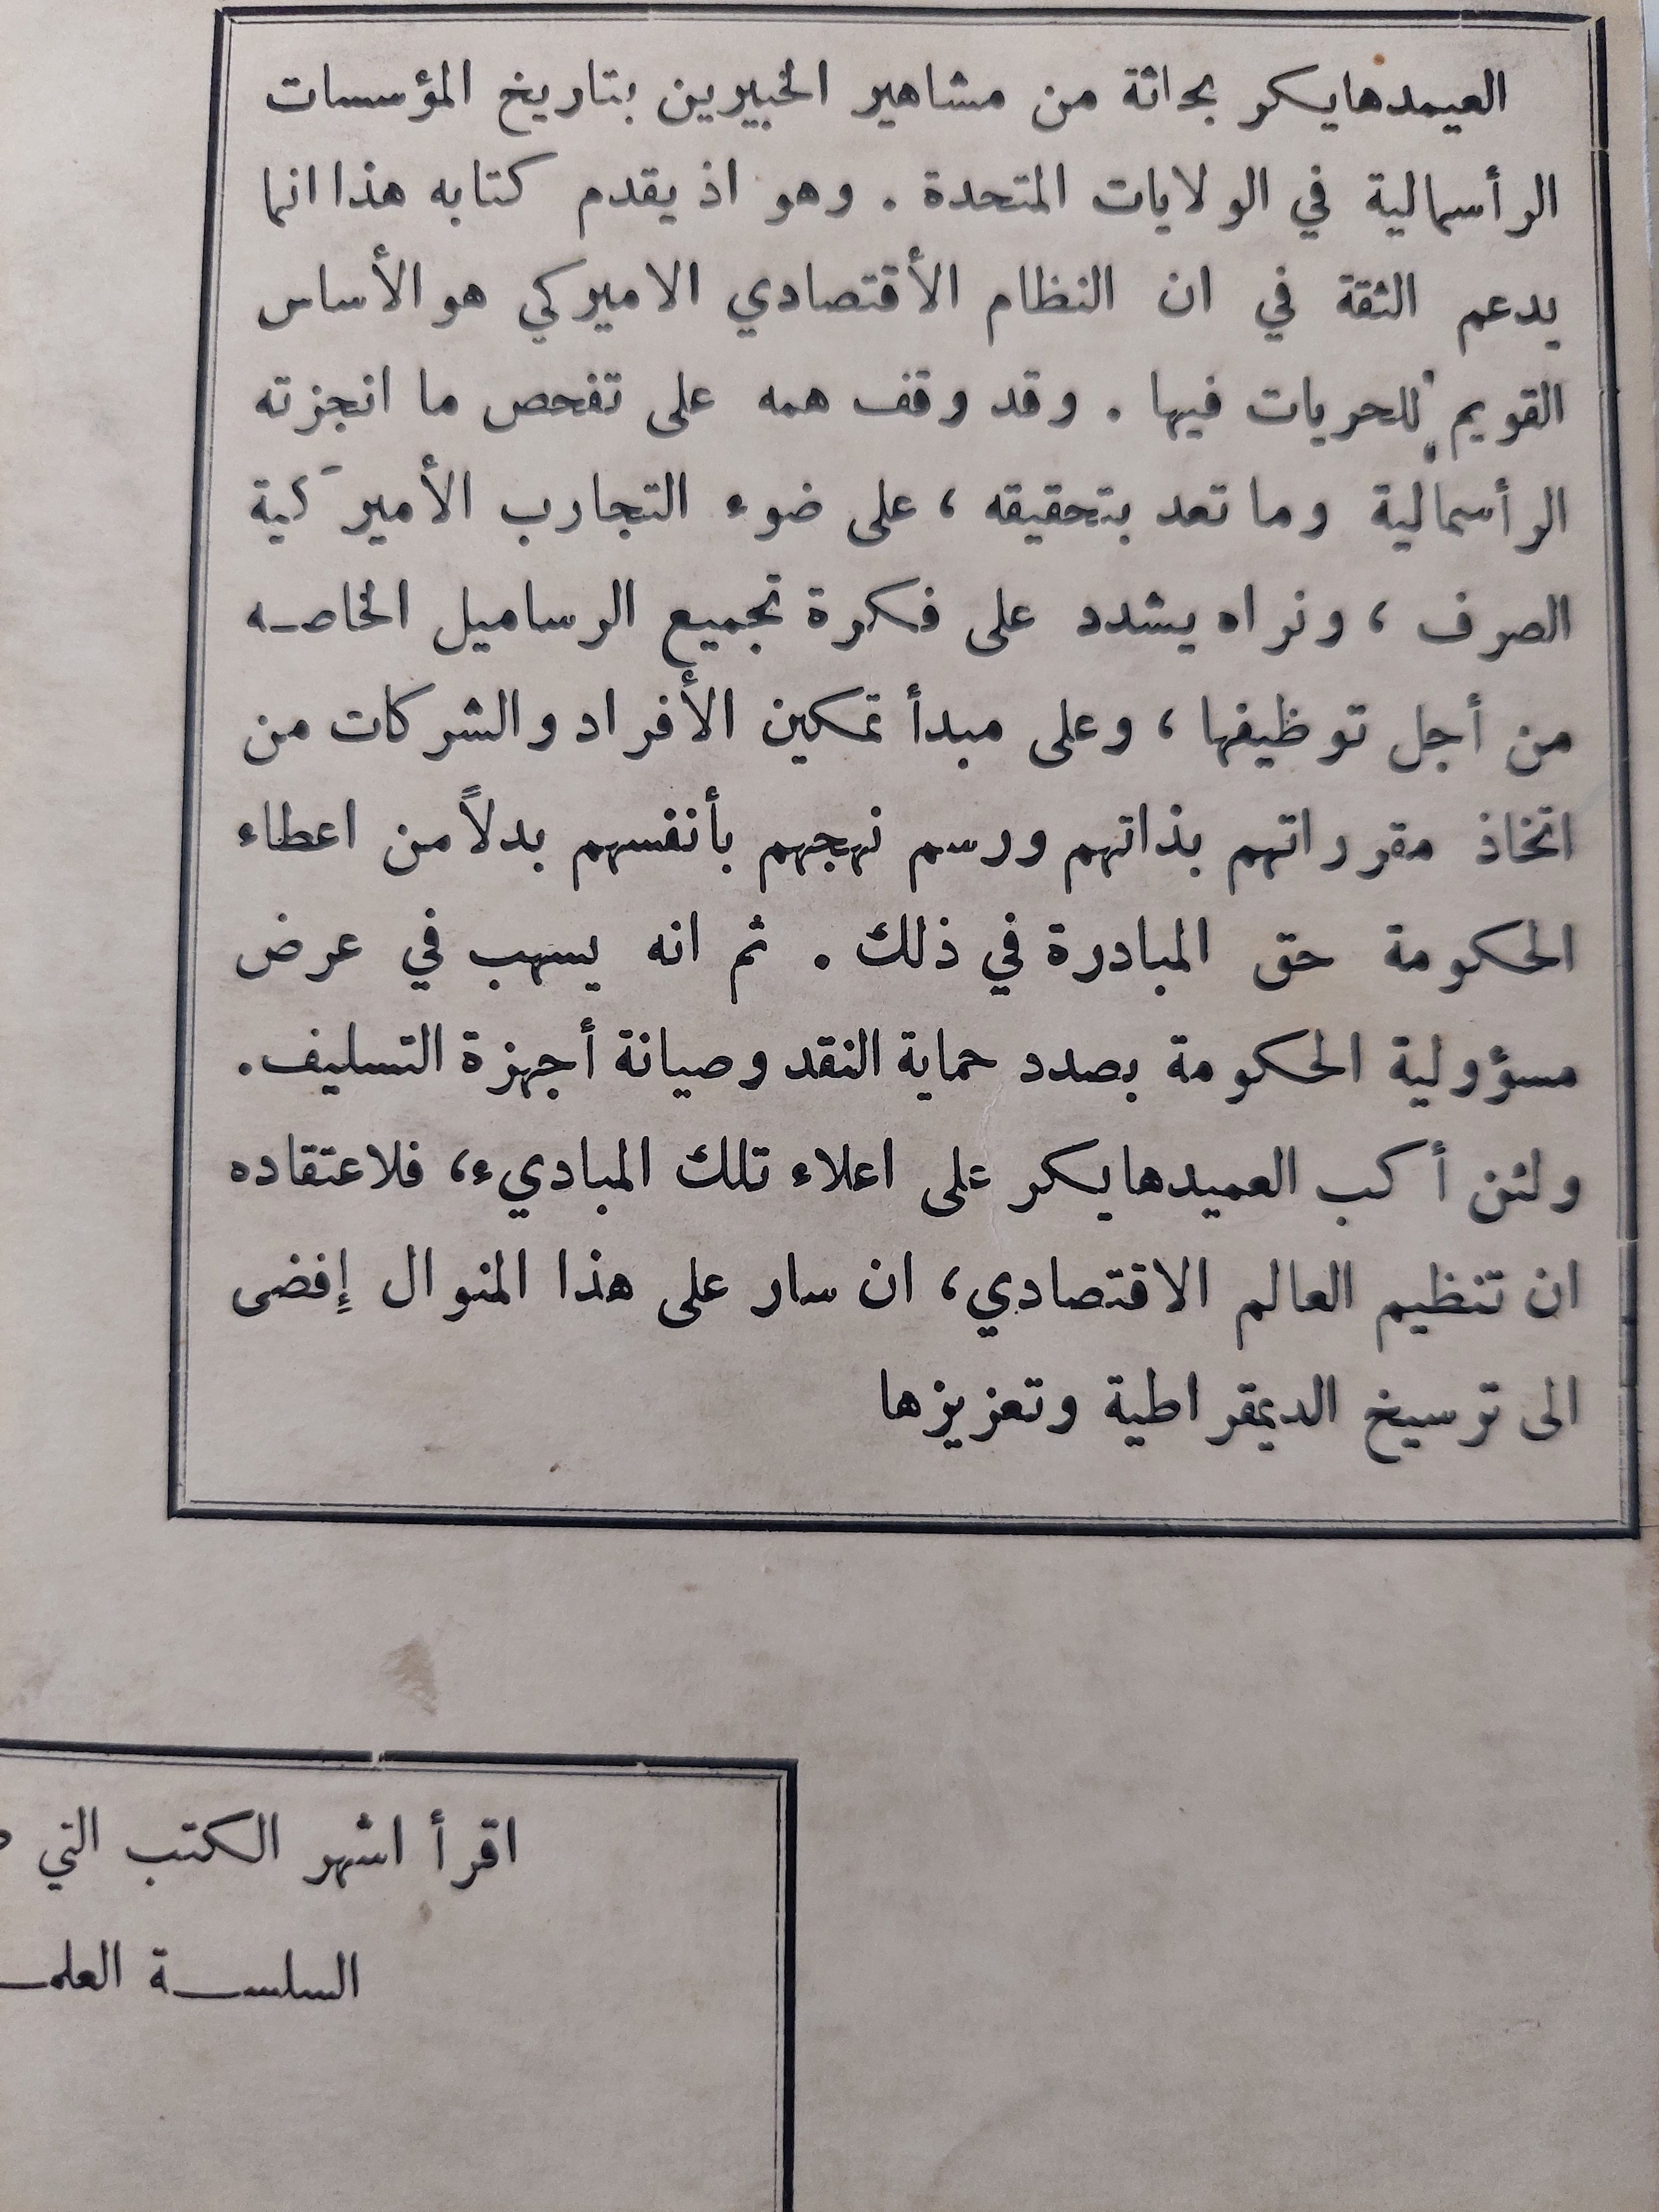 العيمدهايكر بحاثة من مشاهير الخبيرين بتاريخ المؤسسات
الرأسمالية في الولايات المتحدة . وهو اذ يقدم كتابه هذا انما
يدعم الثقة في ان النظام الأقتصادي الاميركي هو الأساس
القويم للحريات فيها . وقد وقف همه على تفحص ما انجزته
الرأسمالية وما تعد بتحقيقه ، على ضوء التجارب الأميركية
الصرف ، ونراه يشدد على فكرة تجميع الرساميل الخاصه
من أجل توظيفها ، وعلى مبدأ تمكين الأفراد والشركات من
اتخاذ مقرراتهم بذاتهم ورسم نهجهم بأنفسهم بدلاً من اعطاء
الحكومة حق المبادرة في ذلك . ثم انه يسهب في عرض
مسؤولية الحكومة بصدد حماية النقد وصيانة أجهزة التسليف .
ولئن أكب العميدهايكر على اعلاء تلك المباديء، فلاعتقاده
ان تنظيم العالم الاقتصادي، ان سار على هذا المنوال إفضى
الى ترسيخ الديمقراطية وتعزيزها
اقرأ اشهر الكتب التي
السلسـة العلمـ